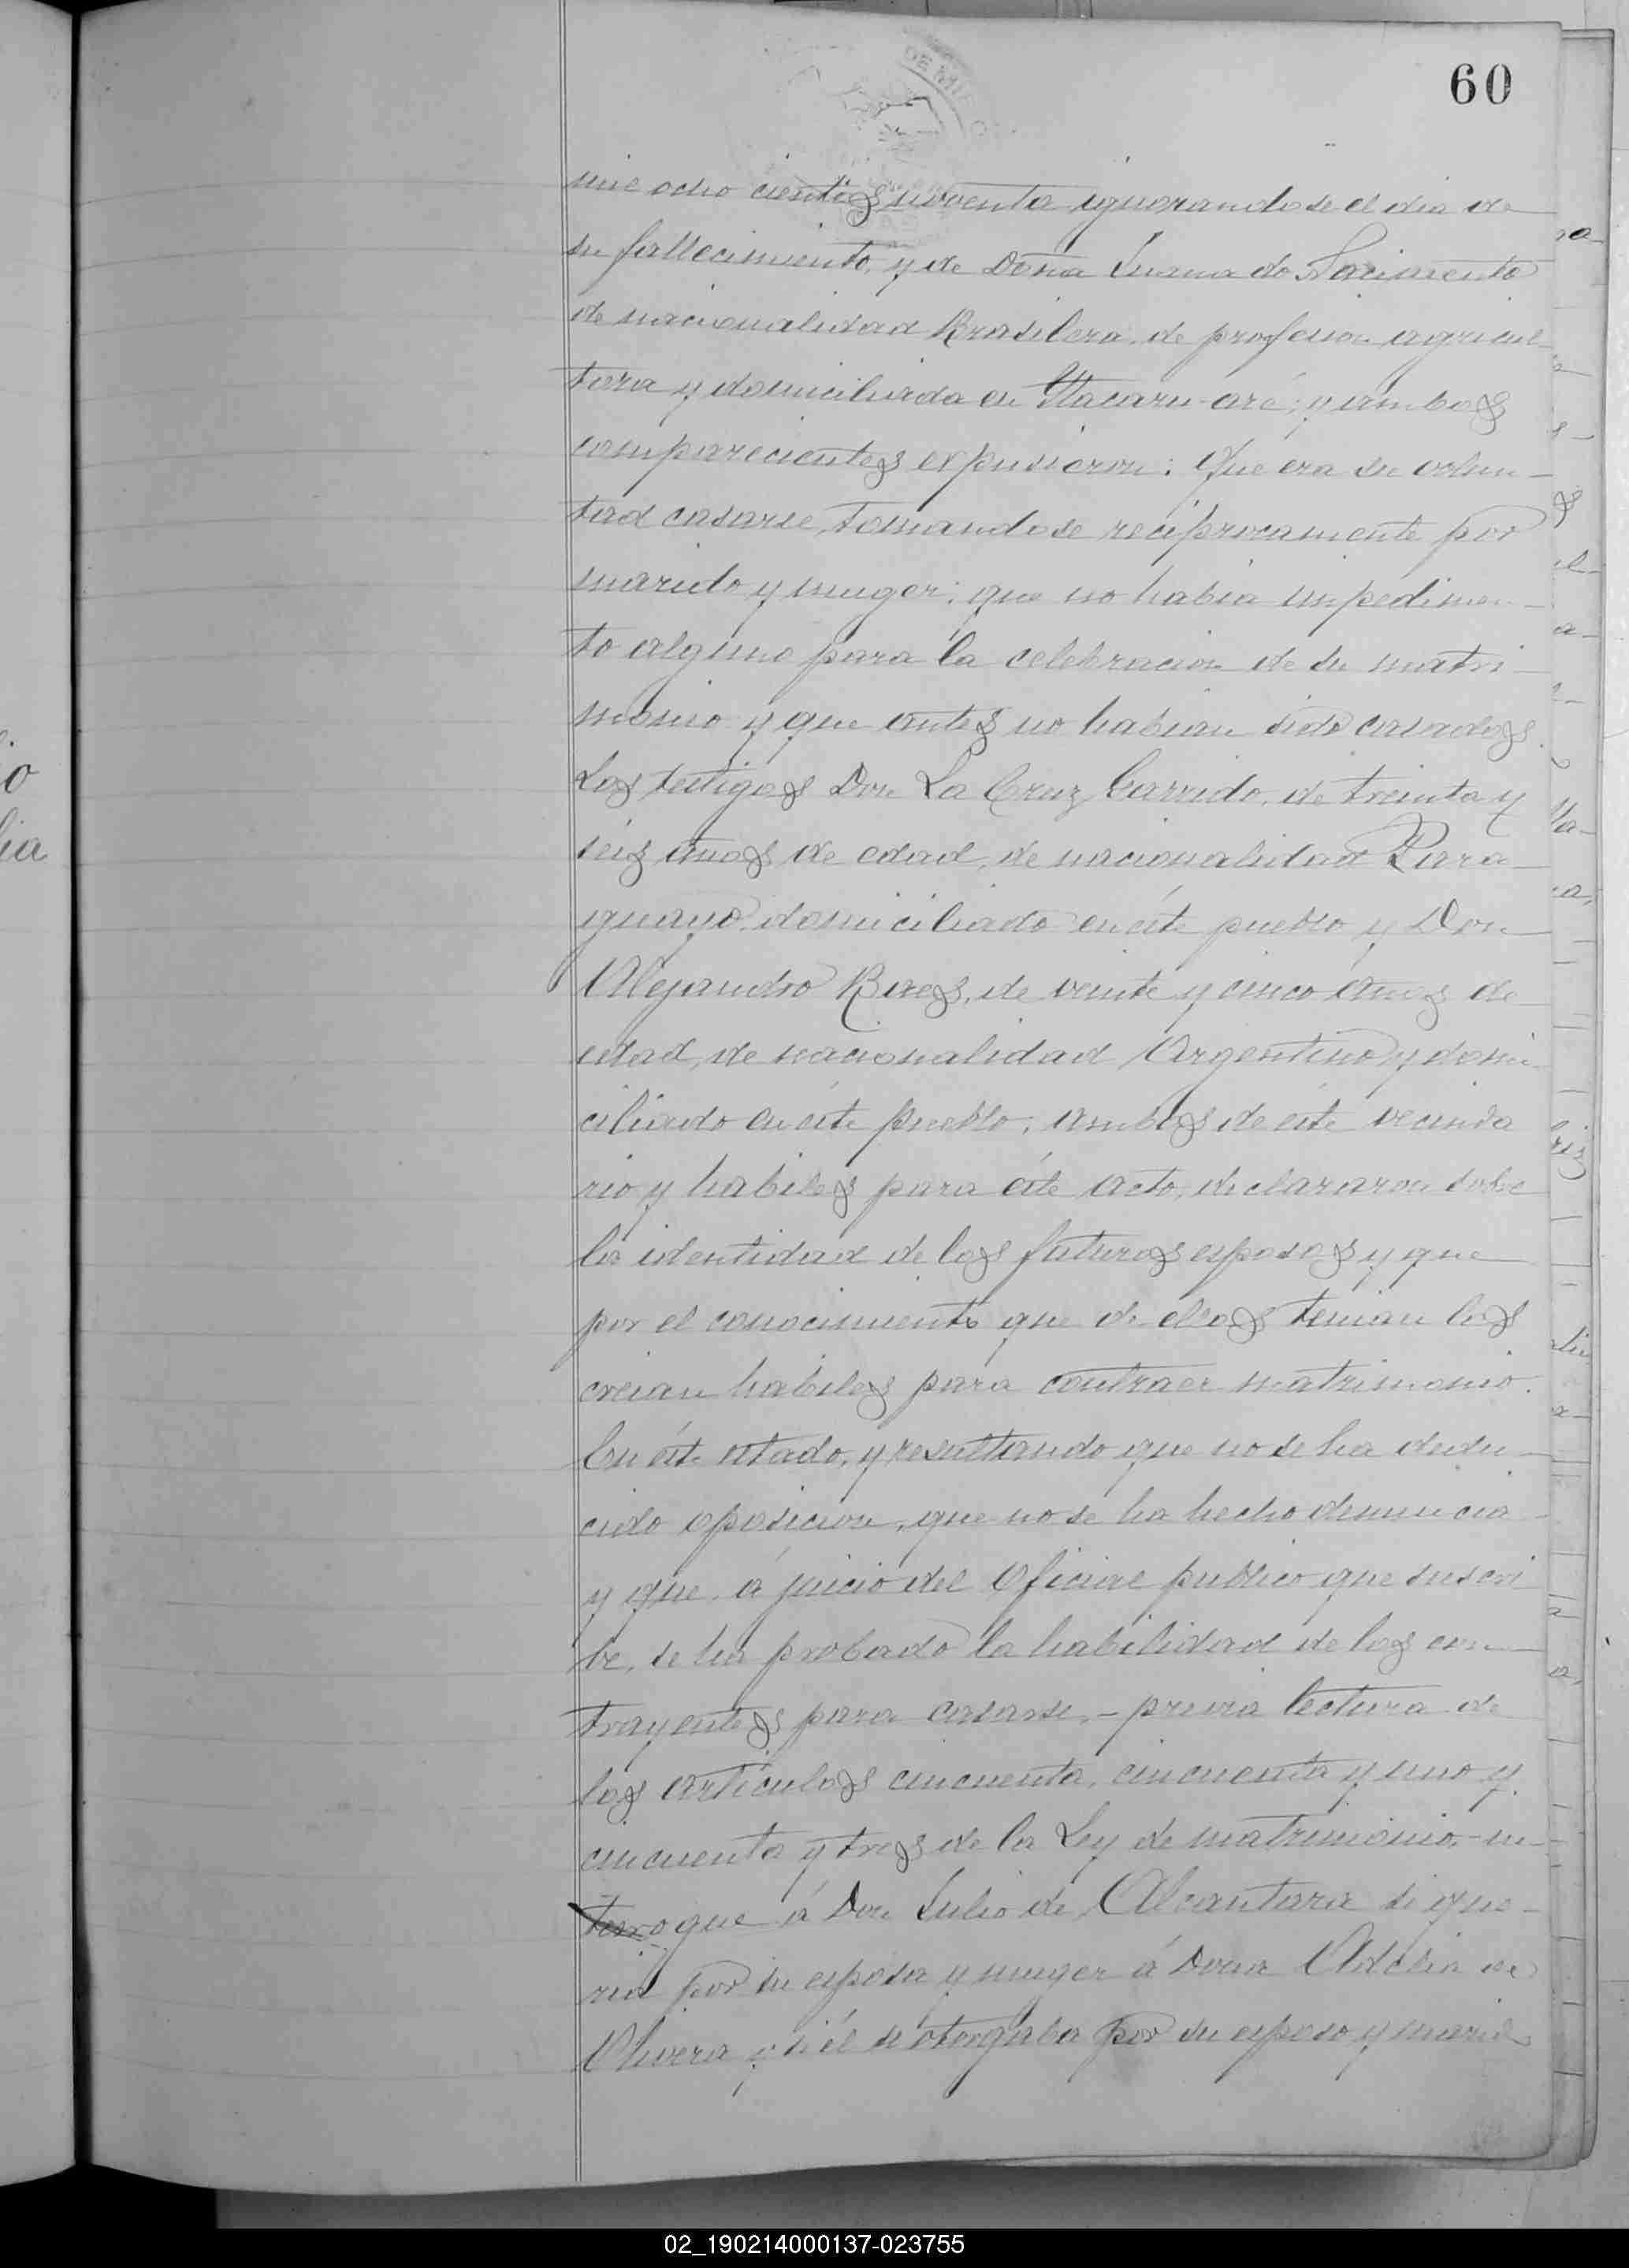 60
mil ocho cientos noventa ignorandose el dia de
su fallecimiento, y de Doña Juana do Nacimento
de nacionalidad Brasilera, de profesion agricul-
tora y domiciliada en Itacaru-aré; y ambos
comparecientes expusieron: Que era su volun-
tad casarse, tomandose reciprocamente por
marido y muger; que no habia impedimen-
to alguno para la celebracion de su matri-
monio y que antes no habian sido casados.
Los testigos Don La Cruz Garrido, de treinta y
seis años de edad, de nacionalidad Para-
guayo domiciliado en éste pueblo y Don
Alejandro Baez, de veinte y cinco años de
edad, de nacionalidad Argentino y domi-
ciliado en éste pueblo; ambos de éste vecinda
rio y habiles para éste acto, declararon sobre
la identidad de los futuros esposos y que
por el conocimiento que de ellos tenian los
creian habiles para contraer matrimonio.
En éste estado, y resultando que no se ha dedu-
cido oposicion, que no se ha hecho denuncia
y que, á juicio del Oficial publico que suscri
be, se ha probado la habilidad de los con-
trayentes para casarse,- previa lectura de
los articulos cincuenta, cincuenta y uno y
cincuenta y tres de la Ley de matrimonio,- in-
terrogue á Don Julio de Alcantara si que-
ria por su esposa y muger á Doña Adelia de
Olivera y si él se otorgaba por su esposo y marido
lia
02_190214000137-023755